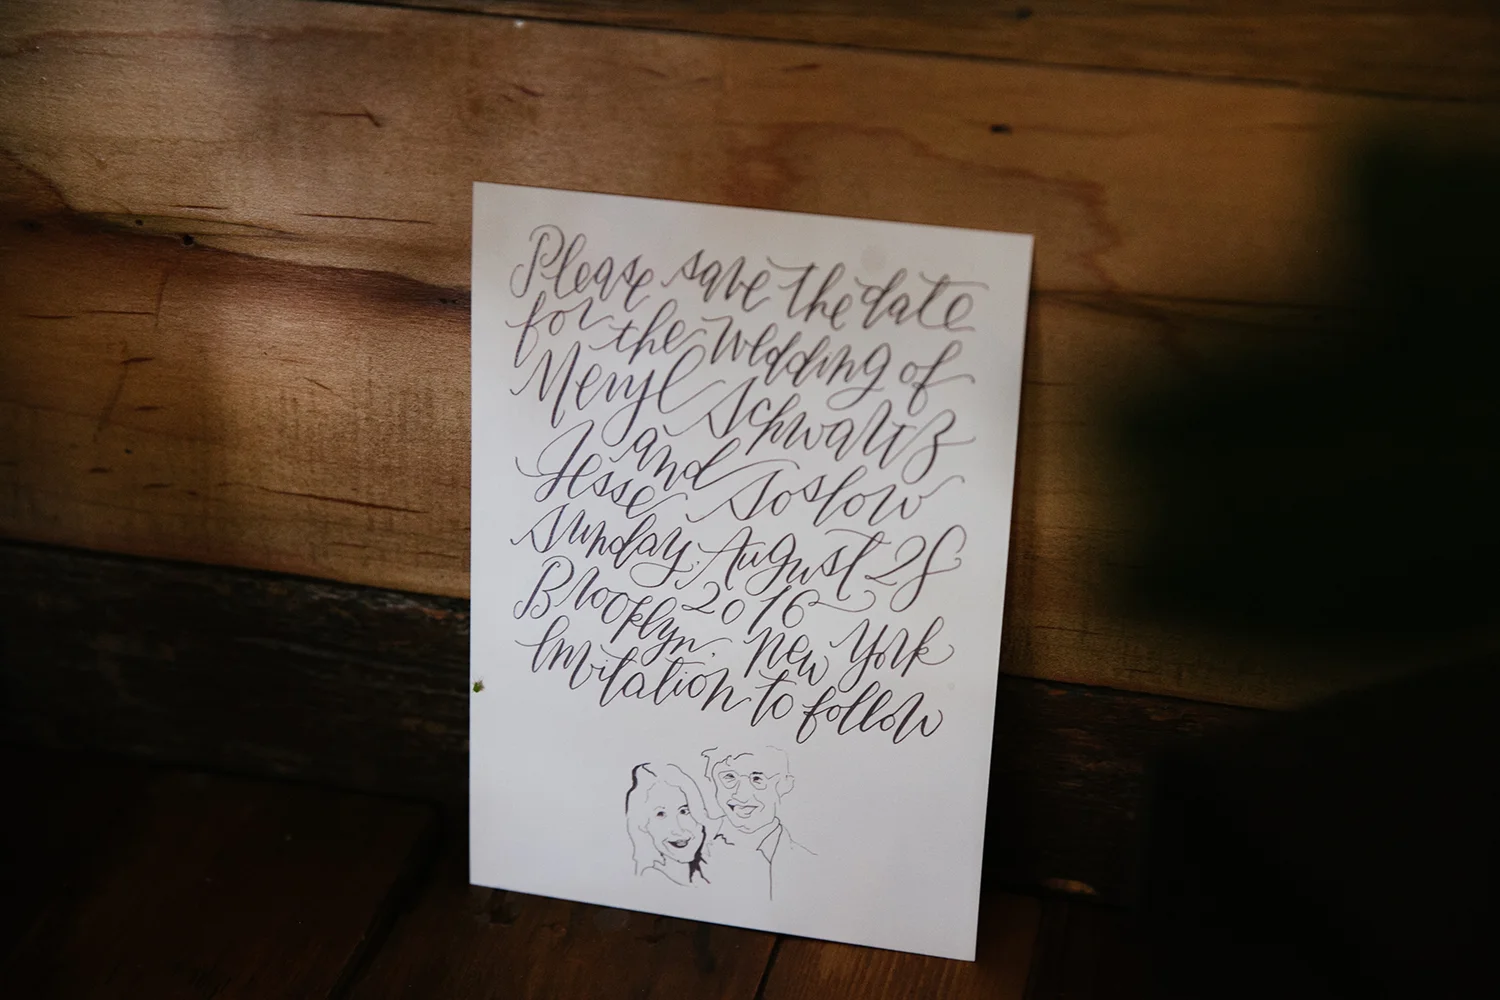 Please save the date
for the wedding of
Meryl Schwartz
and
Jesse Soslow
Sunday, August 28
2016
Brooklyn, New York
Invitation to follow